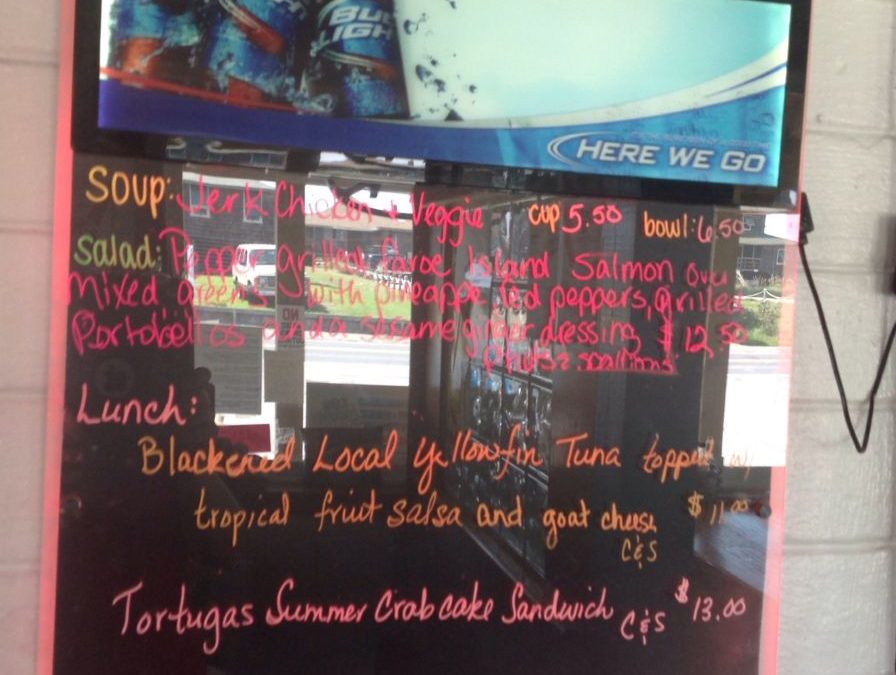 BUD LIGHT
HERE WE GO
Soup: Jerk Chicken & Veggie cup 5.50 bowl: 6.50
Salad: Pepper grilled faroe Island Salmon over
mixed greens with pineapple, red peppers, grilled
Portobellos and a sesame ginger dressing $12.50
Lunch:
Blackened Local Yellowfin Tuna topped w/
tropical fruit salsa and goat cheese $11.00
C&S
Tortugas Summer Crabcake Sandwich C&S $13.00